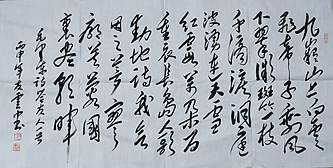 九嶷山上白雲
飛帝子乘風
下翠微斑竹一枝
千滴淚洞庭
波湧連天雪
紅霞萬朵百
重衣長島人歌
動地詩我欲
因之夢寥
廓芙蓉國
裏盡朝暉
毛澤東詩答友人
丙申年 書